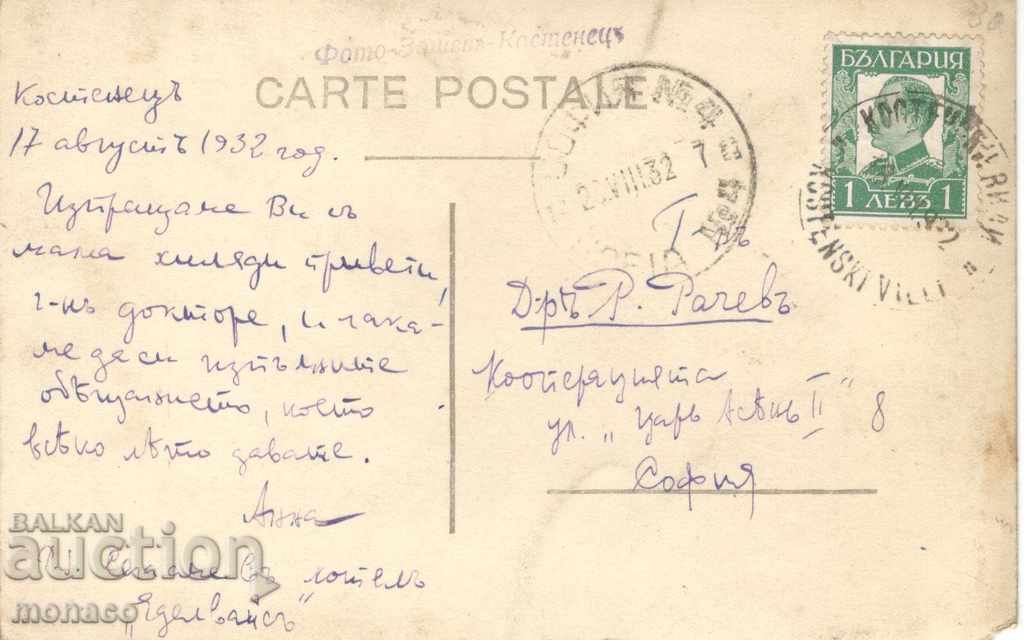 Фото-Костенецъ
CARTE POSTALE
Костенецъ
17 августъ 1932 год.
Изпращаме Ви съ
мама хиляди привети,
г-нъ докторе, и чака-
ме да си изпълните
обѣщанието, което
всѣко лѣто давате.
Анна
хотелъ
„Еделвайсъ"
БЪЛГАРИЯ
1 ЛЕВЪ 1
№ 4
VIII.32 7
KOSTENSKI VILLI
Г-нъ
Д-ръ Р. Рачевъ
Кооперацията
ул. „Царь Асѣнь II" 8
София
BALKAN
auction
monaco